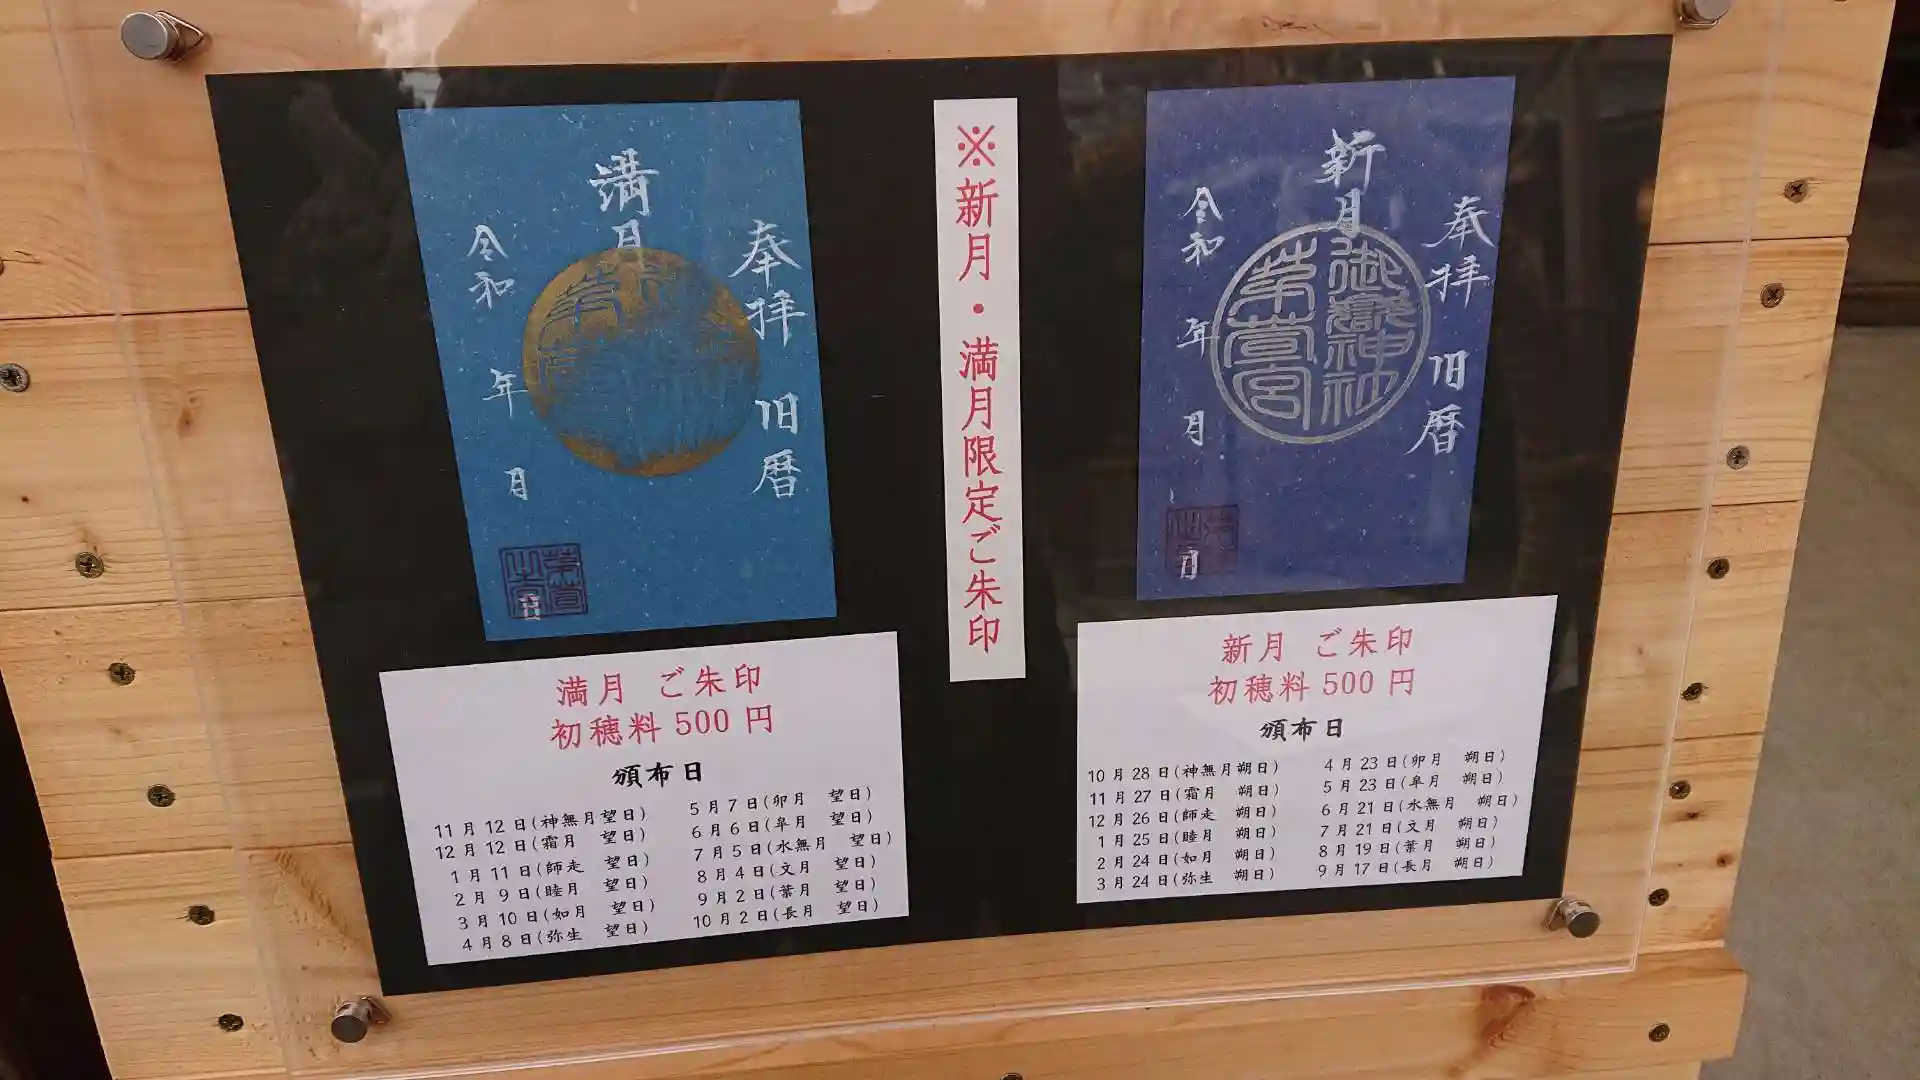 満月
奉拝 旧暦
令和 年 月 日
満月 ご朱印
初穂料 500 円
頒布日
11 月 12 日(神無月望日)
12 月 12 日(霜月 望日)
1 月 11 日(師走 望日)
2 月 9 日(睦月 望日)
3 月 10 日(如月 望日)
4 月 8 日(弥生 望日)
5 月 7 日(卯月 望日)
6 月 6 日(皐月 望日)
7 月 5 日(水無月 望日)
8 月 4 日(文月 望日)
9 月 2 日(葉月 望日)
10 月 2 日(長月 望日)
※新月・満月限定ご朱印
新月
奉拝 旧暦
御嶽神社
茅萱宮
令和 年 月 日
新月 ご朱印
初穂料 500 円
頒布日
10 月 28 日(神無月朔日)
11 月 27 日(霜月 朔日)
12 月 26 日(師走 朔日)
1 月 25 日(睦月 朔日)
2 月 24 日(如月 朔日)
3 月 24 日(弥生 朔日)
4 月 23 日(卯月 朔日)
5 月 23 日(皐月 朔日)
6 月 21 日(水無月 朔日)
7 月 21 日(文月 朔日)
8 月 19 日(葉月 朔日)
9 月 17 日(長月 朔日)